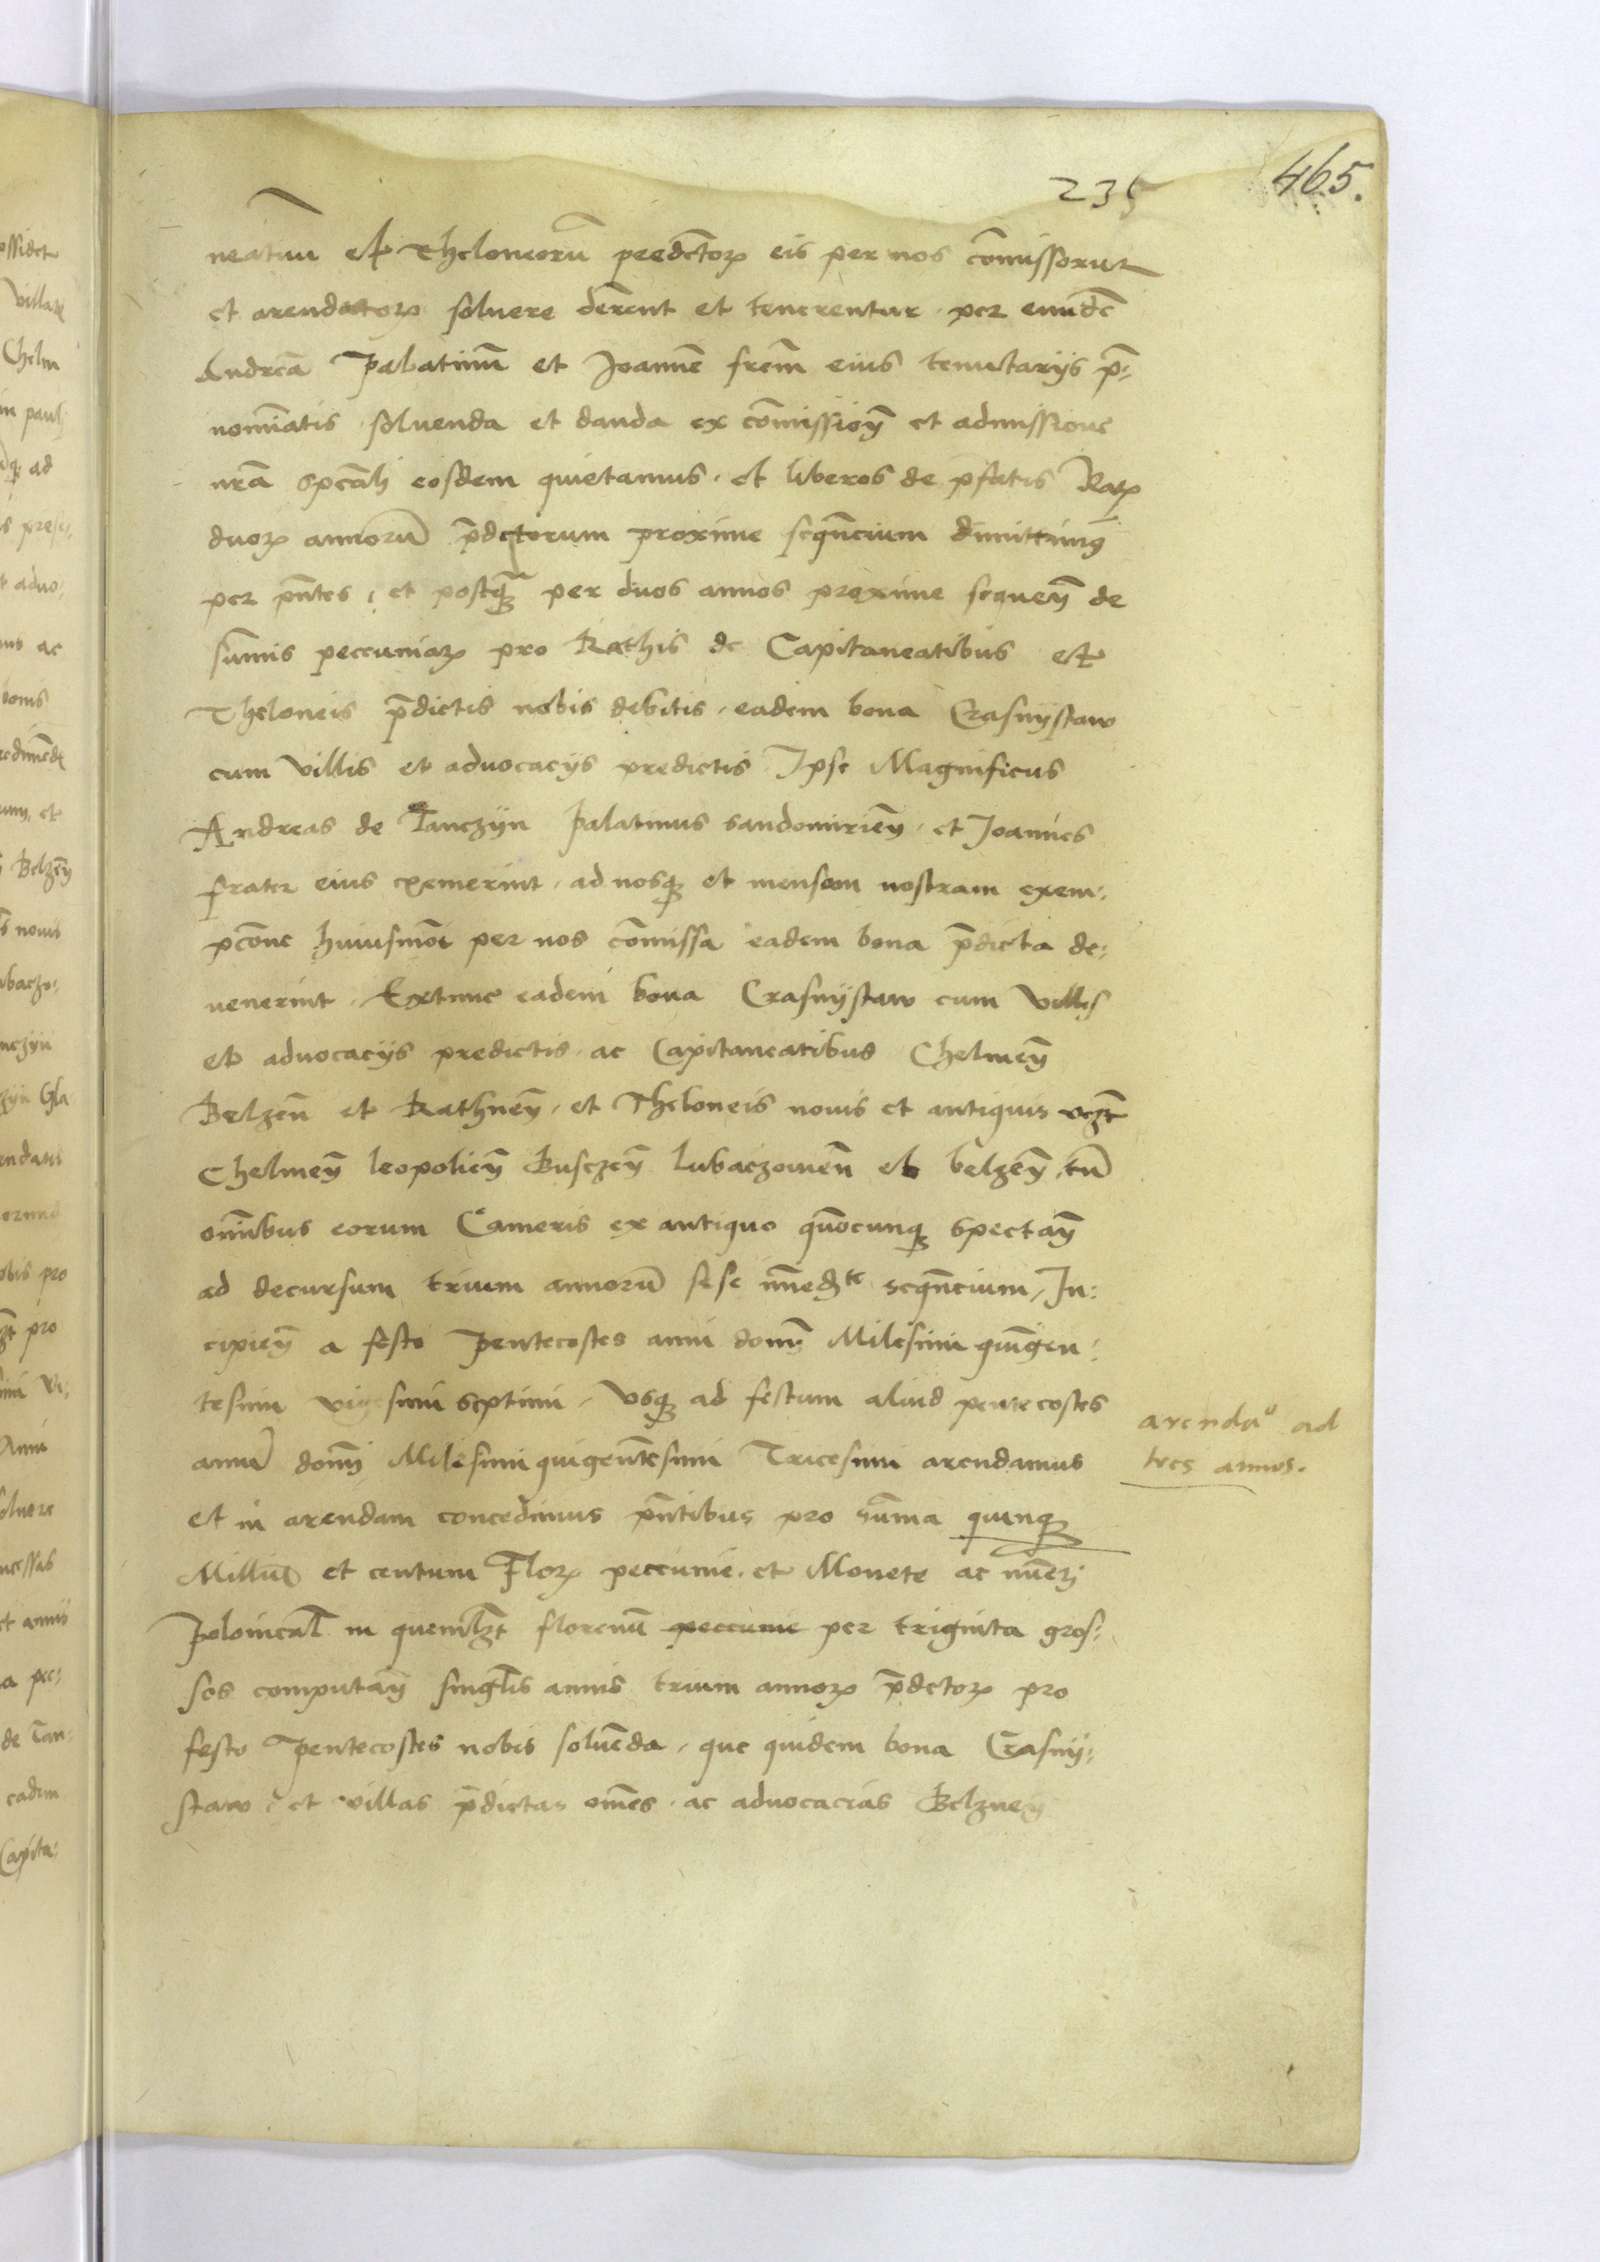 235
465.
neatuu et Theloneorū predictoꝝ eis per nos com̄issorum
et arendatoꝝ soluere deƀent et tenerentur per eundē
Andreā Palatinū et Joannē frem̄ eius tenutarijs p̄:
nominatis soluenda et danda ex com̄issioñ et admissione
nr̄a spēali eosdem quietamus et liberos de p̄fatis Ratꝭ
duoꝝ annorū p̄dctorum proxime seqn̄cium dimittimꝰ
per pn̄tes, et postqꝫ per duos annos proxime sequeñ de
sum̄is peccuniaꝝ pro Rathis de Capitaneatibus et
Theloneis p̄dictis nobis debitis eadem bona Crasnystaw
cum Villis et aduocacijs predictis Ipse Magnificus
Andreas de Tanczyn Palatinus sandomirieñ et Joannes
frater eius exemerint ad nosqꝫ et mensam nostram exem:
pcōne huiusmōi per nos com̄issa eadem bona p̄dicta de:
uenerint Extunc eadem bona Crasnystaw cum Villis
et aduocacijs predictis ac Capitaneatibus Chelmeñ
Belzeñ et Rathneñ et Theloneis nouis et antiquis vczt
Chelmeñ leopolieñ Busczeñ lubaczowieñ et belzeñ cū
om̄ibus eorum Cameris ex antiquo quōcunqꝫ spectañ
ad decursum trium annorū sese im̄ed̄te seqn̄cium, In:
cipieñ a festo Pentecostes anni domī Milesimi quīgen:
tesimi vigesimi septimi Vsqꝫ ad festum aliud pentecostes
annū domī Milesimi quigentesimi Tricesimi arendamus
et in arendam concedimus pn̄tibus pro sum̄a quinqꝫ
Milliū et centum Floꝝ peccunie et Monete ac nūeri
Polonicał in quemlꝫt florenū peccunie per triginta gros:
sos computañ singlis annis trium annoꝝ p̄dctoꝝ pro
festo Pentecostes nobis soluēda que quidem bona Crasny:
staw et villas p̄dictas om̄es ac aduocacias Belzneñ
arendaᵒ ad
tres annos.